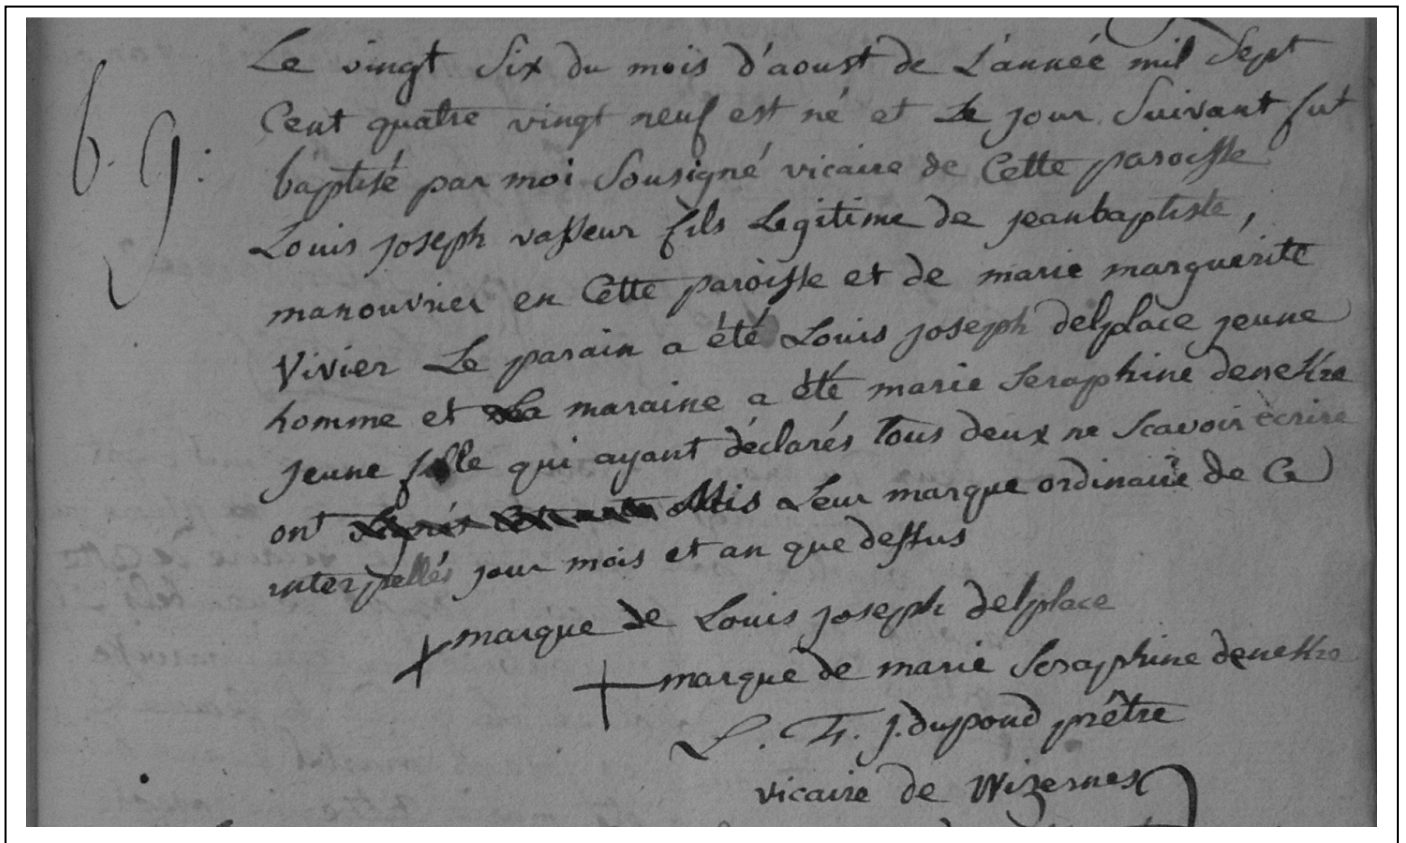 Le vingt Six du mois d'aoust de L'année mil Sept
b. g: Cent quatre vingt neuf est né et Le jour Suivant fut
baptisé par moi Sousigné vicaire de Cette paroisse
Louis joseph vasseur fils Legitime de jeanbaptiste,
manouvrier en Cette paroisse et de marie marguérite
Vivier Le parain a été Louis joseph delplace jeune
homme et La maraine a été marie Seraphine
jeune fille qui ayant déclarés tous deux ne Scavoir écrire
ont Mis Leur marque ordinaire de Ce
interpellés jour mois et an que dessus
marque de Louis joseph delplace
marque de marie Seraphine
L. F. j. dupond prêtre
vicaire de Wizernes